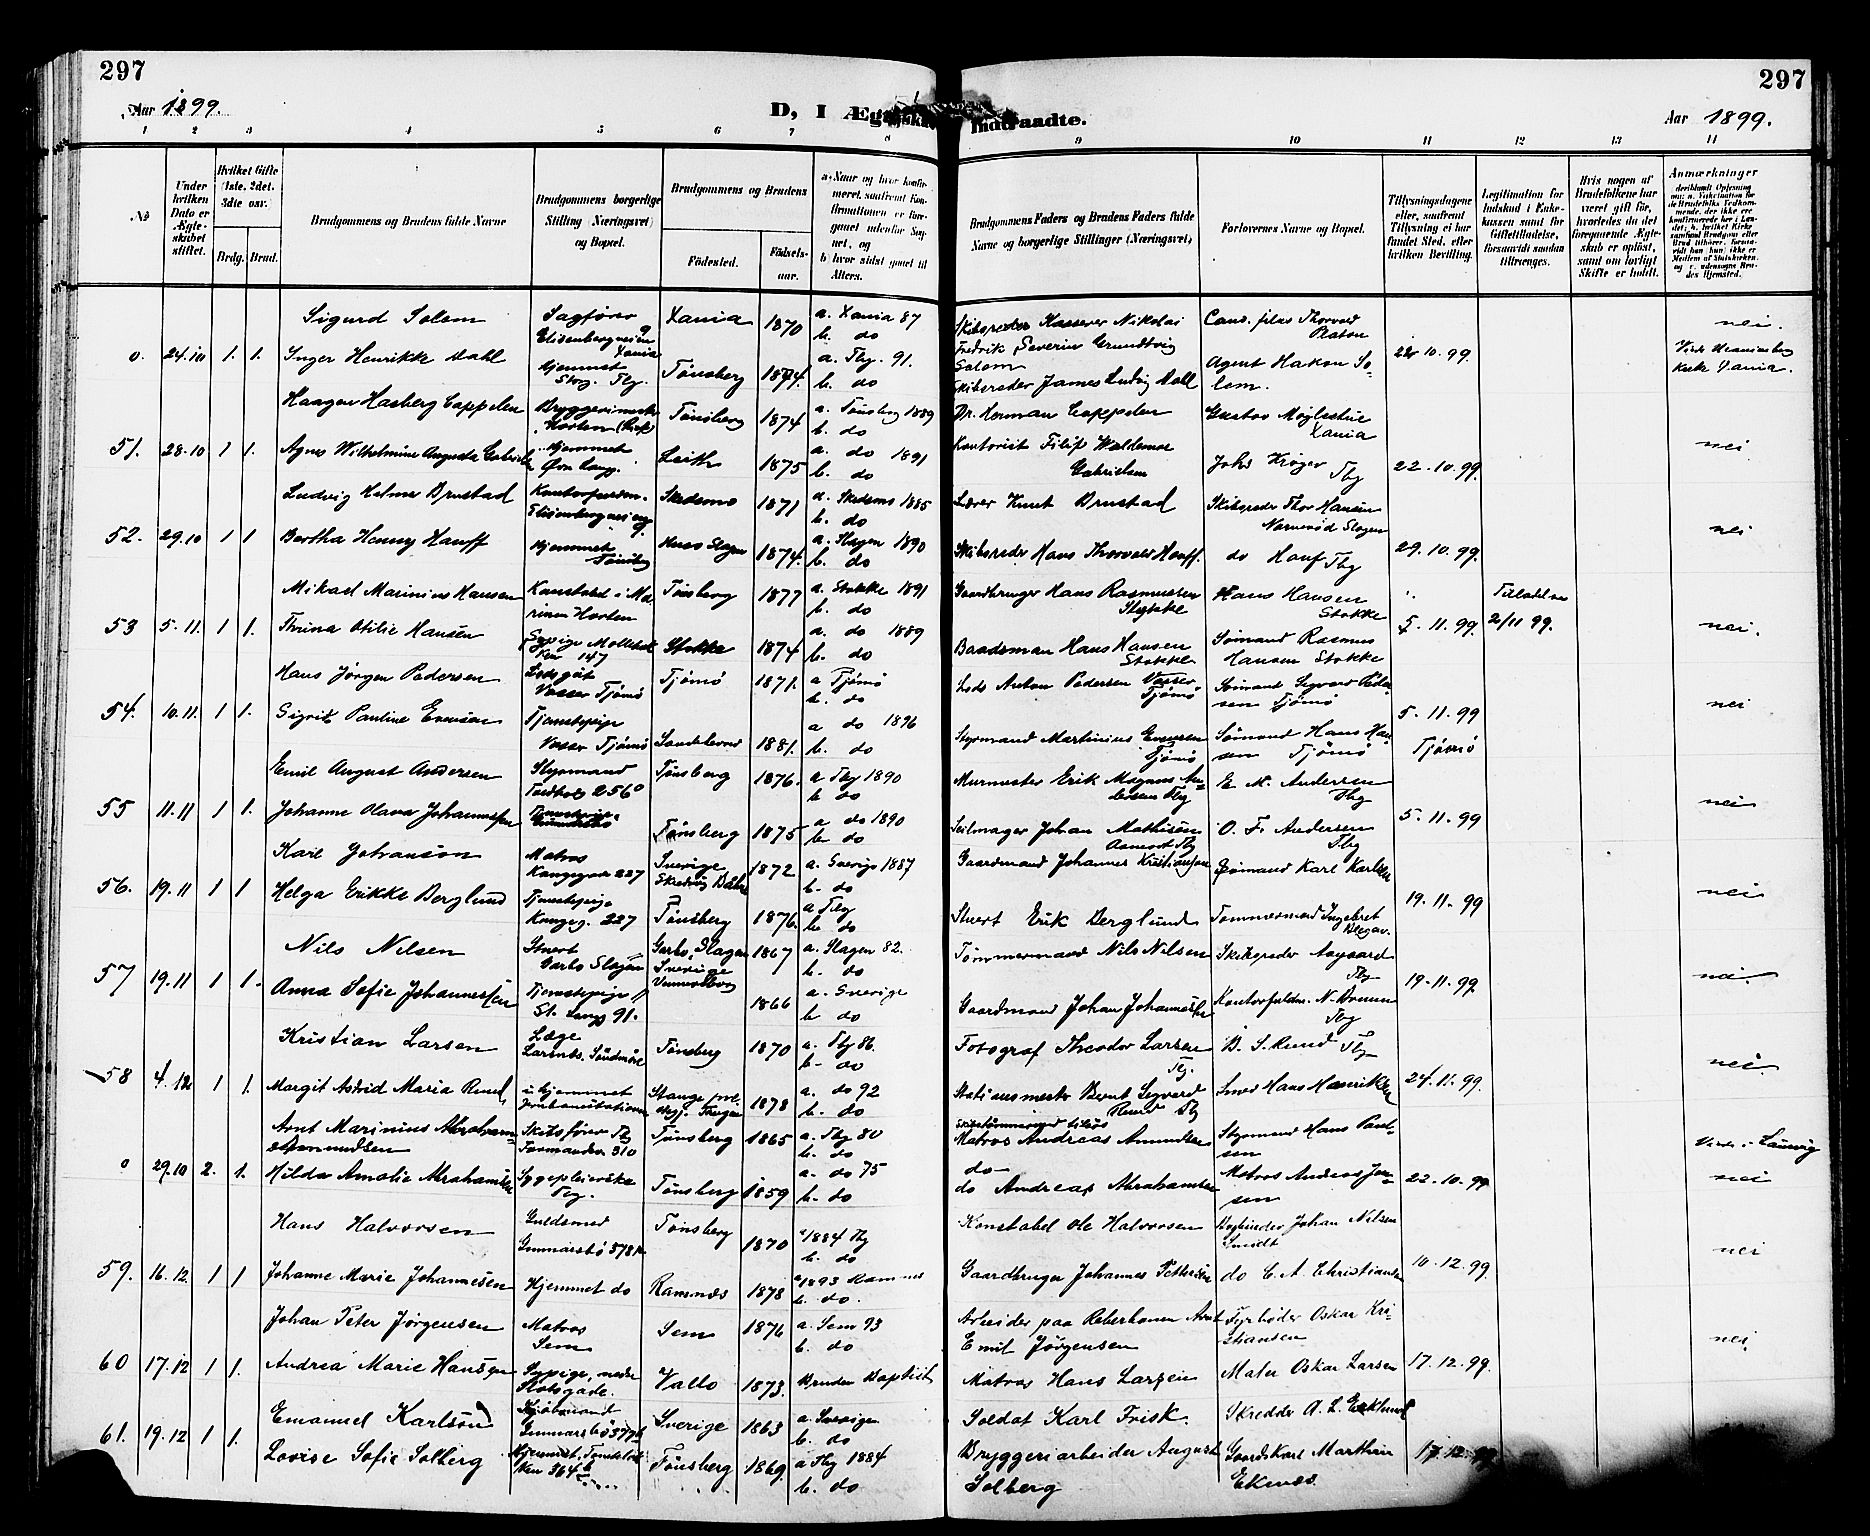 297
297
Aar 1899.
D, I Ægteskab Indtraadte.
Aar 1899.
1 2 3 4 5 6 7 8 9 10 11 12 13 14
№
Under hvilken Dato er Ægteskabet stiftet.
Hvilket Gifte (1ste, 2det, 3die osv.)
Brdg. Brud.
Brudgommens og Brudens fulde Navne
Brudgommens borgerlige Stilling (Næringsvei) og Bopæl.
Brudgommens og Brudens
Fødested. Fødselsaar.
a) Naar og hvor konfirmeret, saafremt Konfirmationen er foregaaet udenfor Sognet, og
b) hvor sidst gaaet til Alters.
Brudgommens Faders og Brudens Faders fulde Navne og borgerlige Stillinger (Næringsvei)
Forlovernes Navne og Bopæl.
Tillysningsdagene eller, saafremt Tillysning ei har fundet Sted, efter hvilken Bevilling.
Legitimation for Indskud i Enkekassen samt for Giftetilladelse, forsaavidt saadan tiltrænges.
Hvis nogen af Brudefolkene har været gift før, hvorledes da det foregaaende Ægteskab er opløst, samt om lovligt Skifte er holdt.
Anmærkninger
Sigurd Solem Sagfører Xania 1870 a. Xania 87 Skibsreder Kasserer Nikolai Cand. filos Thorvald nei.
Elisenbergveien 9 Xania b. do Fredrik Severin Grundtvig Solem Platou
0. 24.10 1. 1. Inger Henrikke Dahl Hjemmet Tbg. Tønsberg 1874. a. Tbg. 91. b. do Skibsreder James Ludvig Dahl Agent Hakon Solem. 22.10.99. Kirke Xania.
Haagen Hasberg Cappelen Bryggerimester Horten Tønsberg 1874 a. Tønsberg 1889 b. do Dr. Herman Cappelen Gustav Møglestue Xania
51. 28.10 1 1. Agnes Wilhelmine Augusta Gabrielsen Hjemmet Øvre Lang. Leith 1875 a. do 1891 b. do Kontorist Filip Waldemar Gabrielsen Johs Krøger Tbg 22.10.99. nei
Ludvig Helmer Brustad Kontorfuldm. Elisenbergvei 9. Skedsmo 1871 a. Skedsmo 1885 b. do Lærer Knut Brustad Skibsreder Thor Hansen Slagen
52. 29.10 1 1 Bertha Henny Hauff Hjemmet Tønsberg Slagen 1874. a. Slagen 1890 b. do Skibsreder Hans Thorvald Hauff. do Hauf Tbg 29.10.99. nei
Mikael Marinius Hansen Konstabel i Marinen Horten Tønsberg 1877 a. Stokke 1891 b. do Gaardbruger Hans Rasmussen Stokke Hans Hansen Stokke Tilladelse 2/11 99.
53 5.11. 1 1. Thrina Otilie Hansen Sypige 147 Stokke 1874 a. do 1889 b. do Baadsman Hans Hansen Stokke Sømand Rasmus Hansen Stokke 5.11.99. nei.
Hans Jørgen Pedersen Lodsgut Vasser Tjømø Tjømø 1871. a Tjømø b. do Lods Anton Pedersen Vasser Tjømø Sømand Sigvard Pedersen Tjømø
54. 10.11. 1 1. Sigrid Pauline Evensen Tjenestepige Vasser Tjømø Sandeherred 1881. a do 1896 b. do Styrmand Martinius Evensen Tjømø Sømand Hans Hansen Tjømø 5.11.99 Tjømø nei
Emil August Andersen Styrmand 256 Tønsberg 1876. a Tbg 1890 b do Murmester Erik Magnus Andersen Tbg E. M. Andersen Tbg
55 11.11 1 1. Johanne Olava Johannessen Tjenestepige Tønsberg 1875 a do 1890 b. do Seilmager Johan Mathisen Tbg O. F. Andersen Tbg 5.11.99 nei
Karl Johanson Matros Kongegade 227 Sverige 1872 a. Sverige 1887 b. do Gaardmand Johannes Kristiansen Sømand Karl Karlsen
56. 19.11 1 1 Helga Erikke Berglund Tjenestepige Kongeg. 227 Tønsberg 1876. a Tbg b. do Stuert Erik Berglund Tømmermand Ingebret 19.11.99 nei
Nils Nilsen Stuert Garbo Slagen Garbo, Slagen 1867 a. Slagen 82. b. do Tømmermand Nils Nilsen Skibsreder Aagaard Tbg
57 19.11 1 1. Anna Sofie Johannessen Tjenestepige St. Lang. 91. Sverige Vennersborg 1866 a. Sverige b. do Gaardmand Johan Johannessen Kontorfuldm. N. Tbg 19.11.99. nei.
Kristian Larsen Læge Søndmøre Tønsberg 1870 a. Tbg 86. b. do Fotograf Theodor Larsen Tbg. B. S. Ruud Tbg
58 4.12 1 1. Margit Astrid Maria Ruud, i hjemmet Jernbanestationen Stange 1878 a. do 92 b. do Stationsmester Bernt Sigvard Ruud Tbg Smed Hans Henriksen 24.11.99. nei
Arnt Marinius Abraham Amundsen Skibsfører Tbg Farmandsv 310 Tønsberg 1865 a. Tbg 80 b. do Matros Andreas Amundsen Styrmand Hans Paulsen Laurvig
0 29.10 2. 1. Hilda Amalie Abrahamsen Sygepleierske Tbg. Tønsberg 1859 a. do 75 b. do do Andreas Abrahamsen Matros Andreas Jensen 22.10.99 nei
Hans Halvorsen Guldsmed Gunnarsbø 378 Tønsberg 1870 a 1884 Tbg b. do Konstabel Ole Halvorsen Bogbinder Johan Nilsen Smidt
59. 16.12. 1 1 Johanne Marie Johannesen Hjemmet do Ramnæs 1878 a 1893 Ramnæs b. do. Gaardbruger Johannes Pettersen do C. A. Christiansen 10.12.99. nei
Johan Peter Jørgensen Matros Sem Sem 1876 a. Sem 93 b. do Arbeider paa Reberbanen Arnt Emil Jørgensen Fyrbøder Oskar Kristiansen
60 17.12 1 1. Andrea Marie Hansen Sypige, nedre Slotsgade. Vallø 1873. Bruden Baptist Matros Hans Larsen Maler Oskar Larsen 17.12.99. nei.
Emanuel Karlson Kjøbmand Gunnarsbø 377 b Sverige 1863 a. Sverige b. do Soldat Karl Frisk. Skredder A. L. Eklund
61. 19.12 1 1. Lovise Sofie Solberg Hjemmet, 364 b Tønsberg 1869. a Tbg 1884 b. do Bryggeriarbeider August Solberg Gaardskarl Marthin Ekenes. 17.12.99